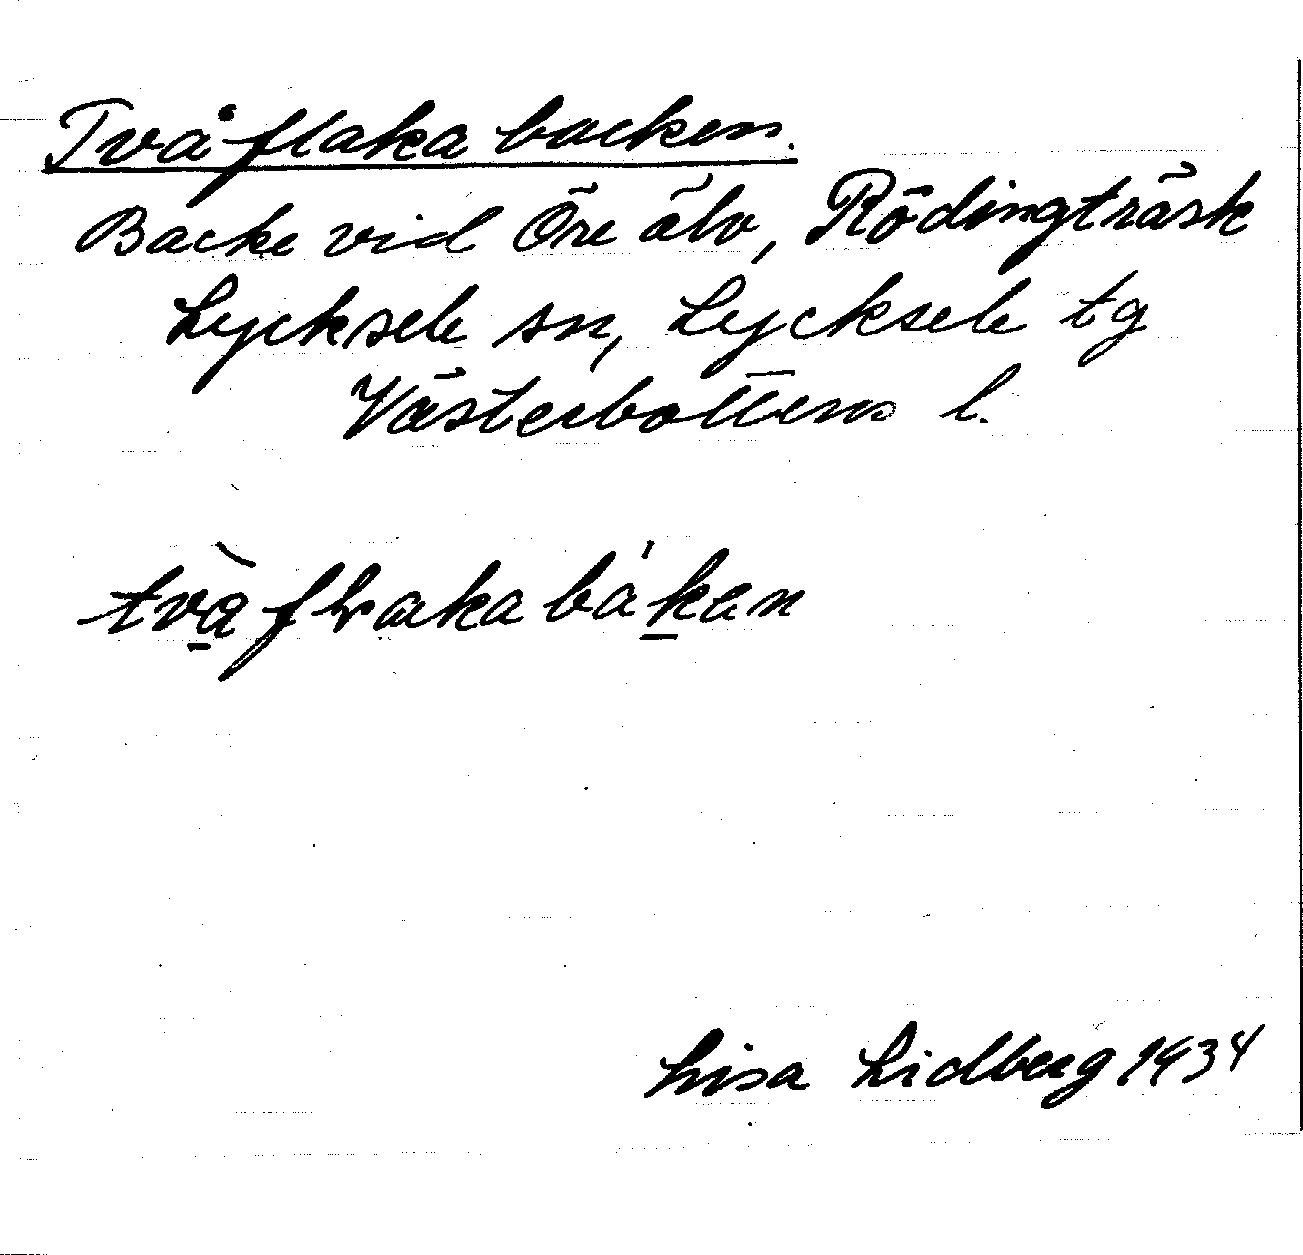 Tvåflaka backen.
Backe vid Öre älv, Rödingträsk
Lycksele sn, Lycksele tg
Västerbottens l.
Lisa Lidberg 1934